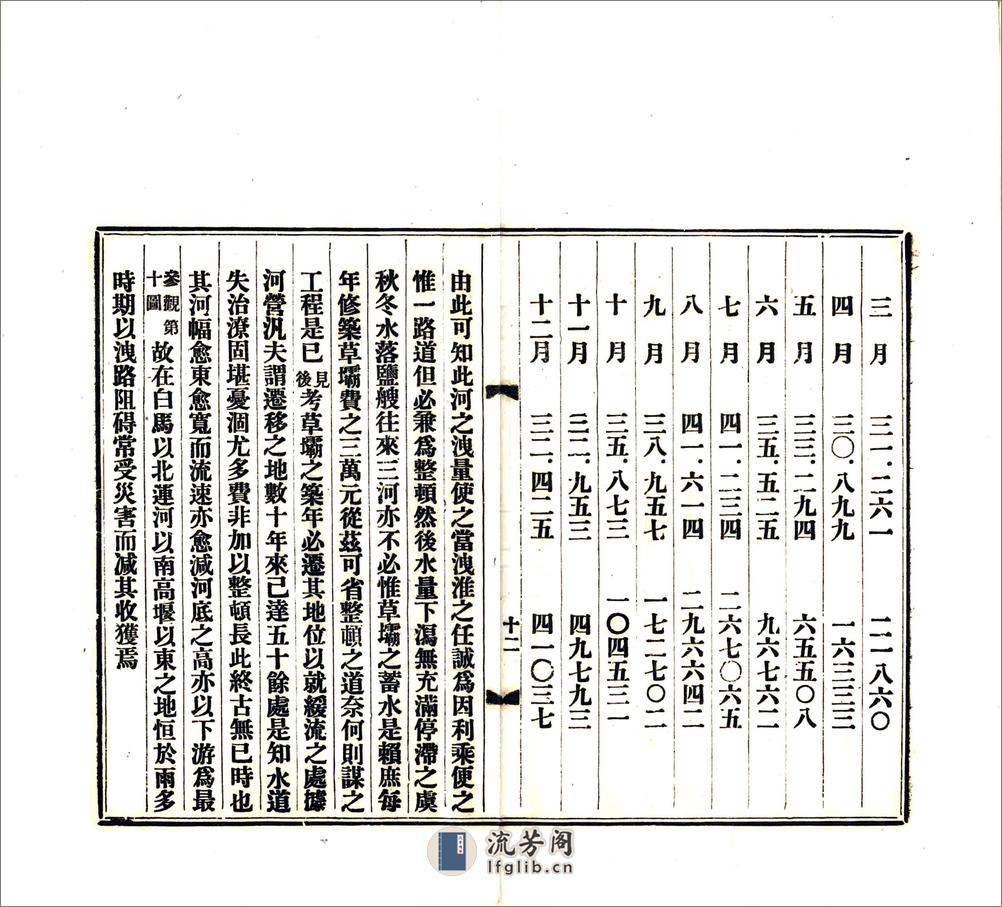 三月 三一.二六一 二一八六〇
四月 三〇.八九九 一六三三三
五月 三三.二九四 六五五〇八
六月 三五.五二五 九六七六二
七月 四一.二三四 二六七〇六五
八月 四一.六一四 二九六六四二
九月 三八.九五七 一七二七〇二
十月 三五.八七三 一〇四五三一
十一月 三二.九五三 四九七九三
十二月 三二.四二五 四一〇三七
十二
由此可知此河之洩量使之當洩淮之任誠爲因利乘便之
惟一路道但必兼爲整頓然後水量下瀉無充滿停滯之虞
秋冬水落鹽艘往來三河亦不必惟草壩之蓄水是賴庶每
年修築草壩費之三萬元從茲可省整頓之道奈何則謀之
工程是已見後考草壩之築年必遷其地位以就緩流之處據
河營汎夫謂遷移之地數十年來已達五十餘處是知水道
失治潦固堪憂涸尤多費非加以整頓長此終古無已時也
其河幅愈東愈寬而流速亦愈減河底之高亦以下游爲最
參觀第十圖故在白馬以北運河以南高堰以東之地恒於雨多
時期以洩路阻碍常受災害而減其收獲焉
流芳阁
lfglib.cn